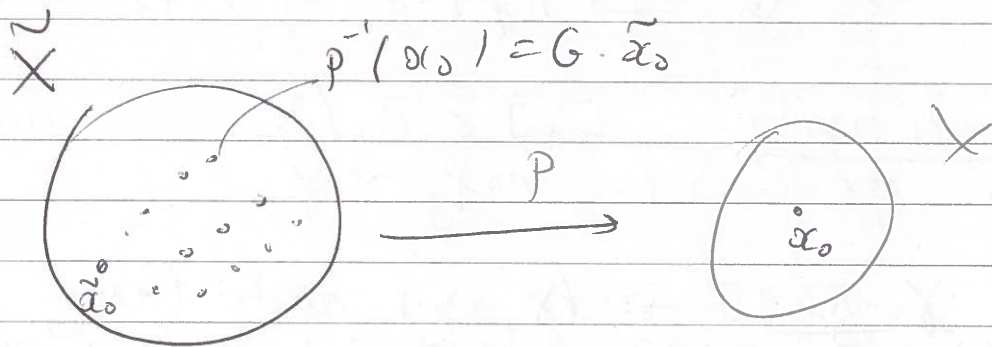 X̃
p⁻¹(x₀) = G · x̃₀
X
p
x₀
x̃₀